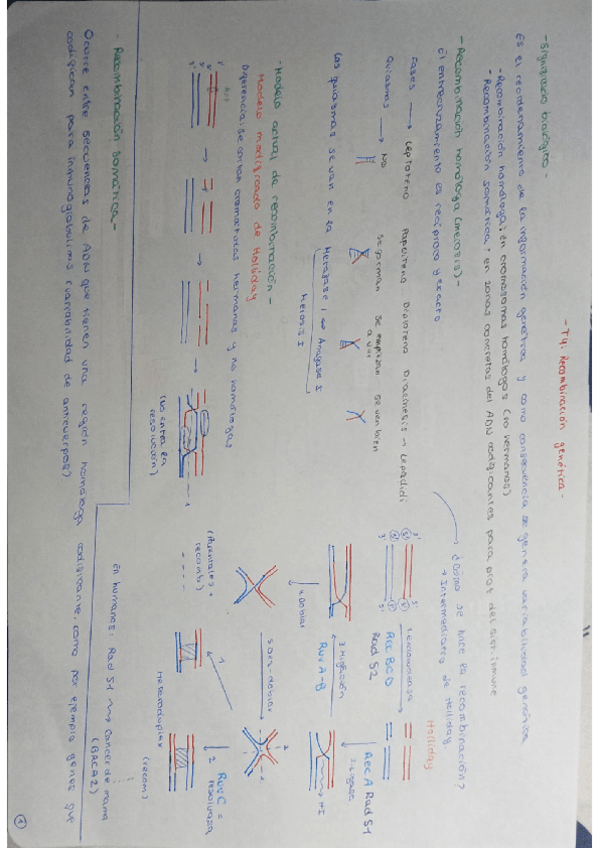 - T4: Recombinación genética -
- Significado biológico -
Es el reordenamiento de la información genética y como consecuencia se genera variabilidad genética
- Recombinación homóloga: en cromosomas homólogos (no hermanos)
- Recombinación somática: en zonas concretas del ADN codificantes para prot del sist. inmune
- Recombinación homóloga (meiosis) -
El entrecruzamiento es recíproco y exacto
Fases → Leptoteno Paquiteno Diploteno Diacinesis →
Quiasmas → No se forman se empiezan a ver se ven bien
Los quiasmas se van en la Metafase I Anafase I
Meiosis I
¿Cómo se hace la recombinación?
→ Intermediarios de Holliday
Holliday
1. Endonucleasa
Rec BCD
Rad 52
Rec A Rad 51
2. Ligasa
HJ
3. Migración
Ruv A-B
4. Doblar
5. Des-doblar
Ruv C = resolvasa
(Parentales + recomb)
Heteroduplex
(recom)
- Modelo actual de recombinación -
Modelo modificado de Holliday
Diferencia: se cortan cromátidas hermanas y no homólogas
(Ya entra en resolución)
En humanos: Rad 51 Cáncer de mama
(BACA 2)
- Recombinación somática -
Ocurre entre secuencias de ADN que tienen una región homóloga codificante, como por ejemplo genes que
codifican para inmunoglobulinas (variabilidad de anticuerpos)
1